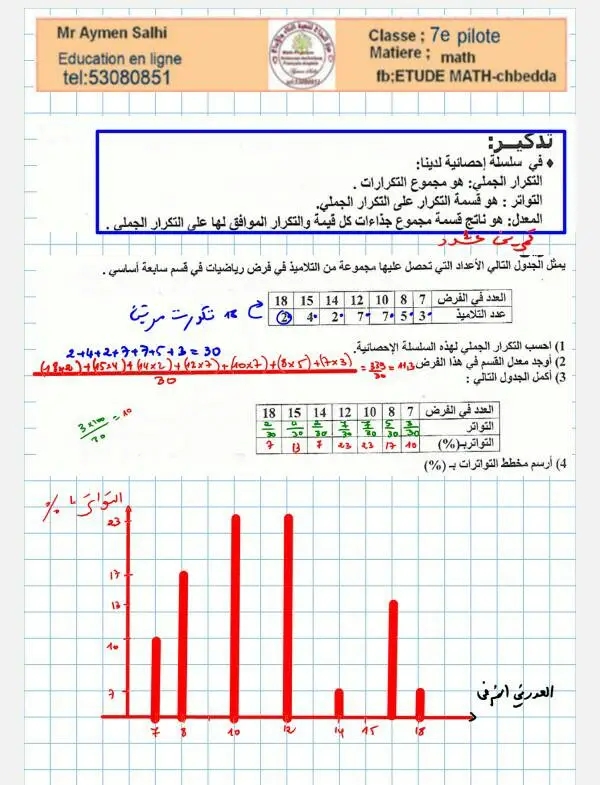 Mr Aymen Salhi
Education en ligne
tel:53080851
Classe ; 7e pilote
Matiere ; math
fb;ETUDE MATH-chbedda
تذكير:
♦ في سلسلة إحصائية لدينا:
التكرار الجملي: هو مجموع التكرارات .
التواتر : هو قسمة التكرار على التكرار الجملي.
المعدل: هو ناتج قسمة مجموع جذاءات كل قيمة والتكرار الموافق لها على التكرار الجملي .
يمثل الجدول التالي الأعداد التي تحصل عليها مجموعة من التلاميذ في فرض رياضيات في قسم سابعة أساسي .
العدد في الفرض 7 8 10 12 14 15 18
عدد التلاميذ 3 5 7 7 2 4 2
18 تكررت مرتين
1) احسب التكرار الجملي لهذه السلسلة الإحصائية.
2+4+2+7+7+5+3 = 30
2) أوجد معدل القسم في هذا الفرض
(18×2)+(15×4)+(14×2)+(12×7)+(10×7)+(8×5)+(7×3)
30
3) أكمل الجدول التالي :
3×100/30 = 10
العدد في الفرض 7 8 10 12 14 15 18
التواتر 3/30 5/30 7/30 7/30 2/30 4/30 2/30
التواتربـ(%) 10 17 23 23 7 13 7
4) أرسم مخطط التواترات بـ (%)
التواتر بـ %
23
17
13
10
7
7 8 10 12 14 15 18